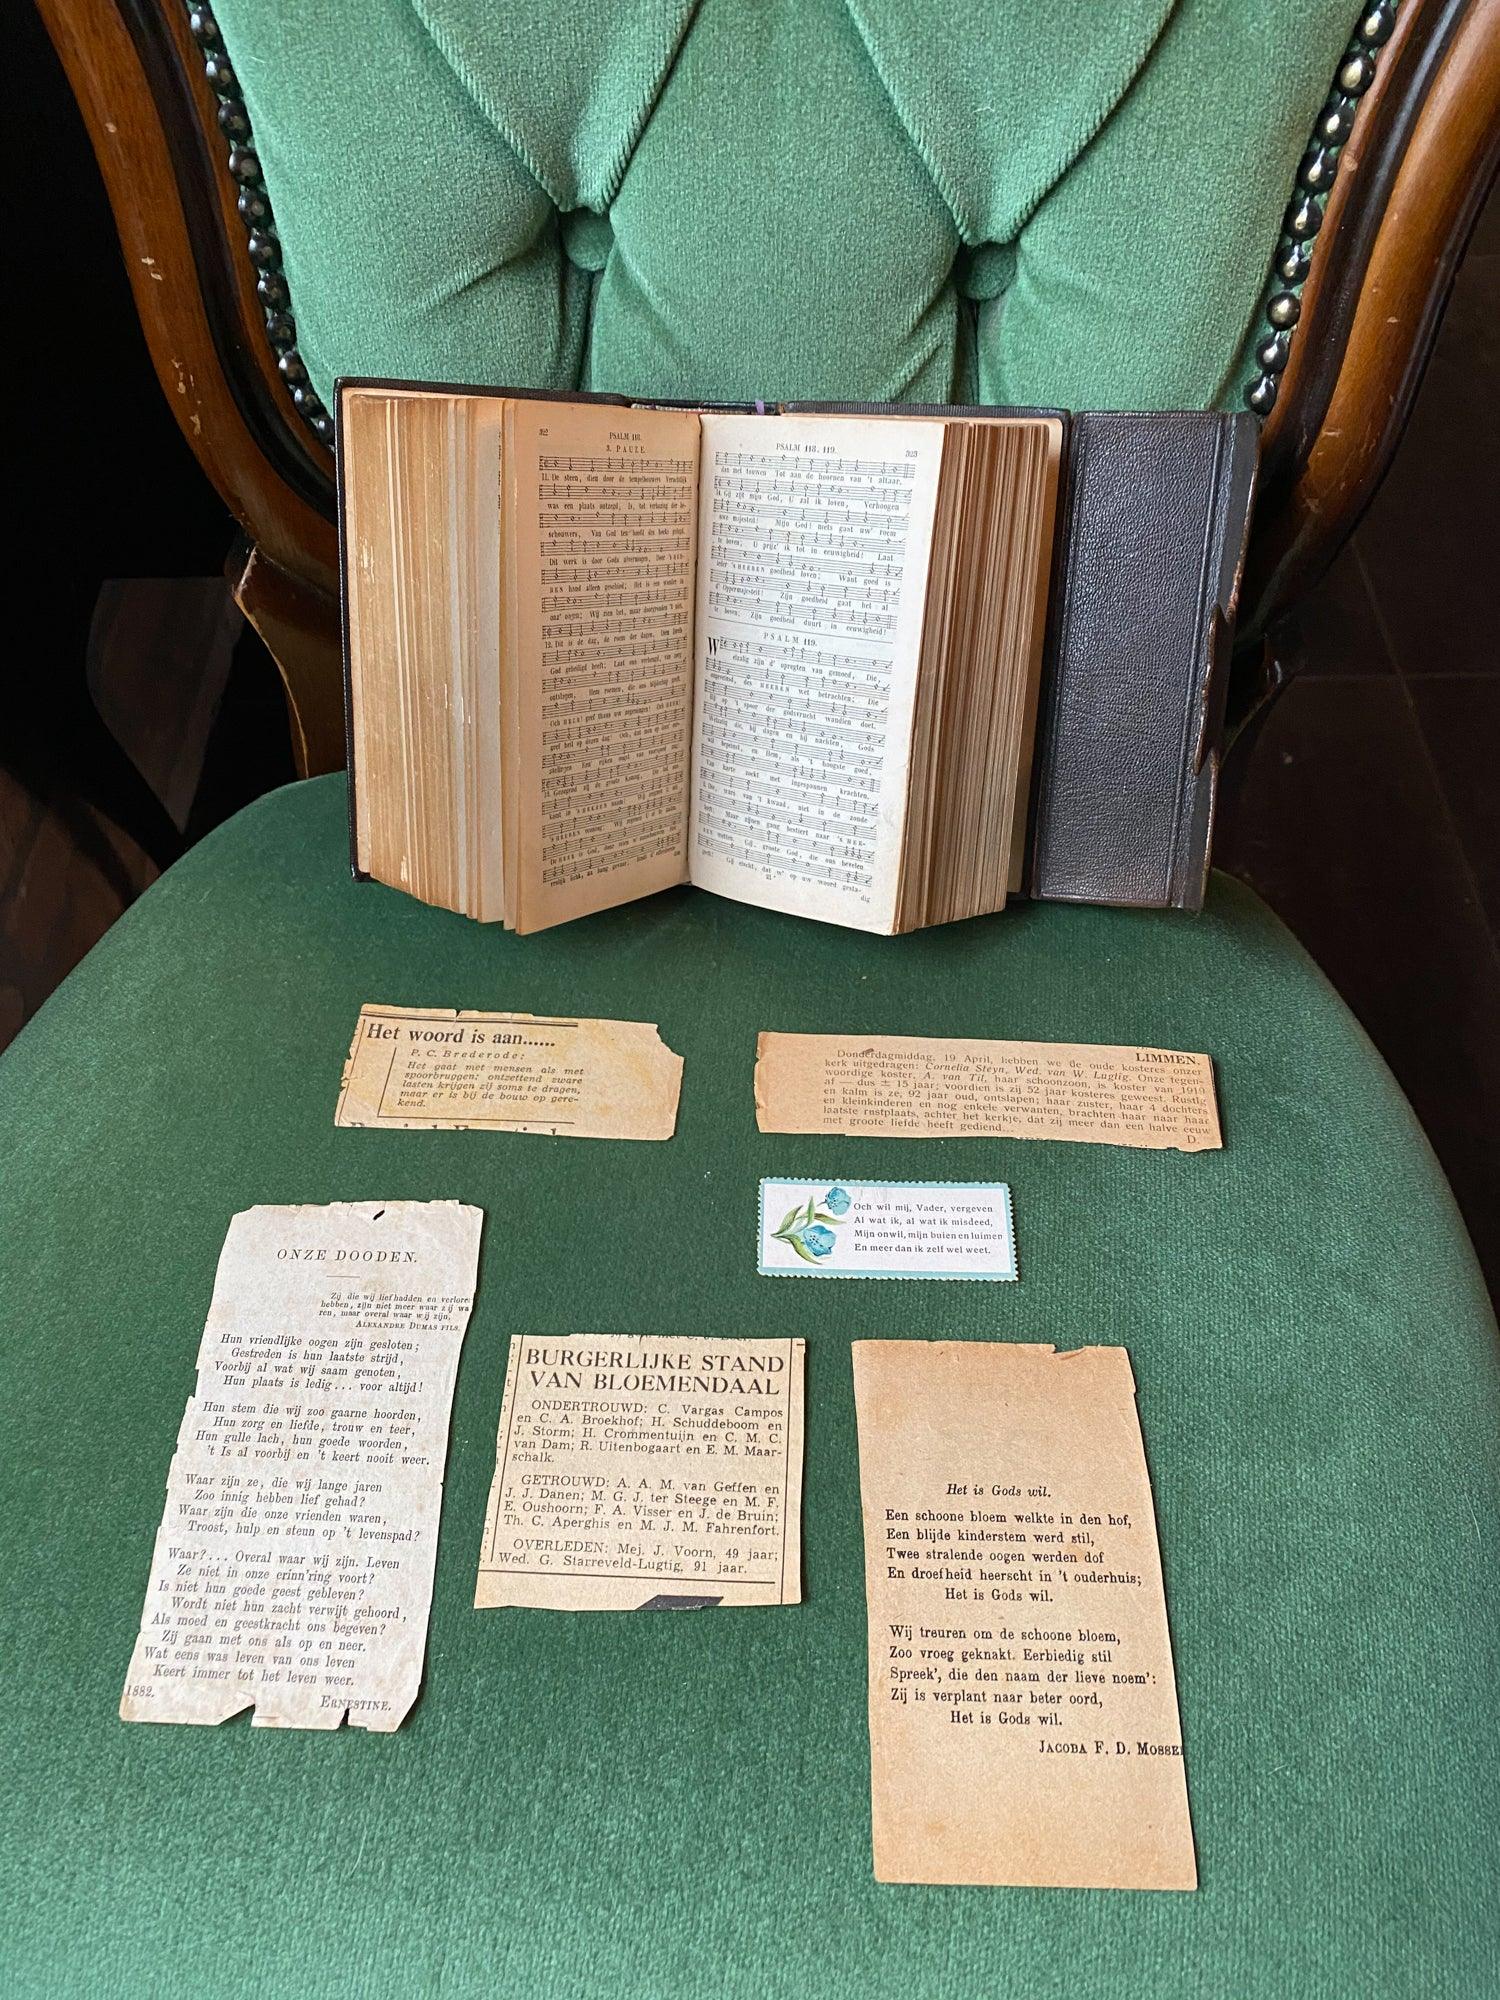 322
PSALM 118.
3. PAUZE.
11. De steen, dien door de tempelbouwers Verachtlijk
was een plaats ontzegd, Is, tot verbazing der be-
schouwers, Van God ten hoofd des hoeks gelegd.
Dit werk is door Gods alvermogen, Door 's HEE-
REN hand alleen geschied; Het is een wonder in
onz' oogen; Wij zien het, maar doorgronden 't niet.
12. Dit is de dag, de roem der dagen, Dien Isrels
God geheiligd heeft; Laat ons verheugd, van zorg
ontslagen, Hem roemen, die ons blijdschap geeft.
Och HEER! geef thans uw zegeningen! Och HEER!
geef heil op dezen dag! Och, dat men op deez' eer-
stelingen Een' rijken oogst van voorspoed zag!
13. Gezegend zij de groote Koning, Die tot ons
komt in 's HEEREN naam! Wij zegenen U uit
'sHEEREN woning; Wij zegenen U al te zaâm.
De HEER is God, door wien w' aanschouwen Het
vrolijk licht, na bang gevaar; Bindt d' offerdieren
dan
PSALM 118. 119.
323
dan met touwen Tot aan de hoornen van 't altaar.
14. Gij zijt mijn God, U zal ik loven, Verhoogen
uwe majesteit! Mijn God! niets gaat uw' roem
te boven; U prijz' ik tot in eeuwigheid! Laat
ieder 's HEEREN goedheid loven; Want goed is
d' Oppermajesteit! Zijn goedheid gaat het al
te boven; Zijn goedheid duurt in eeuwigheid!
PSALM 119.
Welzalig zijn d' opregten van gemoed, Die,
ongeveinsd, des HEEREN wet betrachten; Die
Hij op 't spoor der godsvrucht wandlen doet.
Welzalig die, bij dagen en bij nachten, Gods
wil bepeinst, en Hem, als 't hoogste goed,
Van harte zoekt met ingespannen krachten.
2. Die, wars van 't kwaad, niet in de zonde
leeft; Maar zijnen gang bestiert naar 's HEE-
REN wetten. Gij, groote God, die ons bevelen
geeft! Gij eischt, dat w' op uw woord gesta-
21*
dig
Het woord is aan......
P. C. Brederode:
Het gaat met mensen als met
spoorbruggen: ontzettend zware
lasten krijgen zij soms te dragen,
maar er is bij de bouw op gere-
kend.
LIMMEN.
Donderdagmiddag, 19 April, hebben we de oude kosteres onzer
kerk uitgedragen: Cornelia Steyn, Wed. van W. Luglig. Onze tegen-
woordige koster, A. van Til, haar schoonzoon, is koster van 1910
af — dus ± 15 jaar; voordien is zij 52 jaar kosteres geweest. Rustig
en kalm is ze, 92 jaar oud, ontslapen; haar zuster, haar 4 dochters
en kleinkinderen en nog enkele verwanten, brachten haar naar haar
laatste rustplaats, achter het kerkje, dat zij meer dan een halve eeuw
met groote liefde heeft gediend...
D.
Och wil mij, Vader, vergeven
Al wat ik, al wat ik misdeed,
Mijn onwil, mijn buien en luimen
En meer dan ik zelf wel weet.
ONZE DOODEN.
Zij die wij liefhadden en verlore
hebben, zijn niet meer waar zij wa
ren, maar overal waar wij zijn.
ALEXANDRE DUMAS FILS.
Hun vriendlijke oogen zijn gesloten;
Gestreden is hun laatste strijd,
Voorbij al wat wij saam genoten,
Hun plaats is ledig... voor altijd!
Hun stem die wij zoo gaarne hoorden,
Hun zorg en liefde, trouw en teer,
Hun gulle lach, hun goede woorden,
't Is al voorbij en 't keert nooit weer.
Waar zijn ze, die wij lange jaren
Zoo innig hebben lief gehad?
Waar zijn die onze vrienden waren,
Troost, hulp en steun op 't levenspad?
Waar?... Overal waar wij zijn. Leven
Ze niet in onze erinn'ring voort?
Is niet hun goede geest gebleven?
Wordt niet hun zacht verwijt gehoord,
Als moed en geestkracht ons begeven?
Zij gaan met ons als op en neer.
Wat eens was leven van ons leven
Keert immer tot het leven weer.
1882.
ERNESTINE.
BURGERLIJKE STAND
VAN BLOEMENDAAL
ONDERTROUWD: C. Vargas Campos
en C. A. Broekhof; H. Schuddeboom en
J. Storm; H. Crommentuijn en C. M. C.
van Dam; R. Uitenbogaart en E. M. Maar-
schalk.
GETROUWD: A. A. M. van Geffen en
J. J. Danen; M. G. J. ter Steege en M. F.
E. Oushoorn; F. A. Visser en J. de Bruin;
Th. C. Aperghis en M. J. M. Fahrenfort.
OVERLEDEN: Mej. J. Voorn, 49 jaar;
Wed. G. Starreveld-Lugtig, 91 jaar.
Het is Gods wil.
Een schoone bloem welkte in den hof,
Een blijde kinderstem werd stil,
Twee stralende oogen werden dof
En droefheid heerscht in 't ouderhuis;
Het is Gods wil.
Wij treuren om de schoone bloem,
Zoo vroeg geknakt. Eerbiedig stil
Spreek', die den naam der lieve noem':
Zij is verplant naar beter oord,
Het is Gods wil.
JACOBA F. D. MOSSE